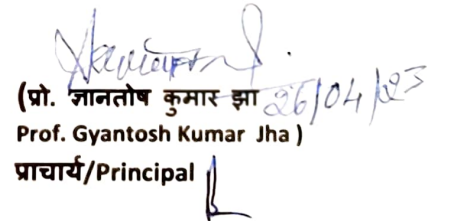 (प्रो. ज्ञानतोष कुमार झा 26/04/23
Prof. Gyantosh Kumar Jha )
प्राचार्य/Principal